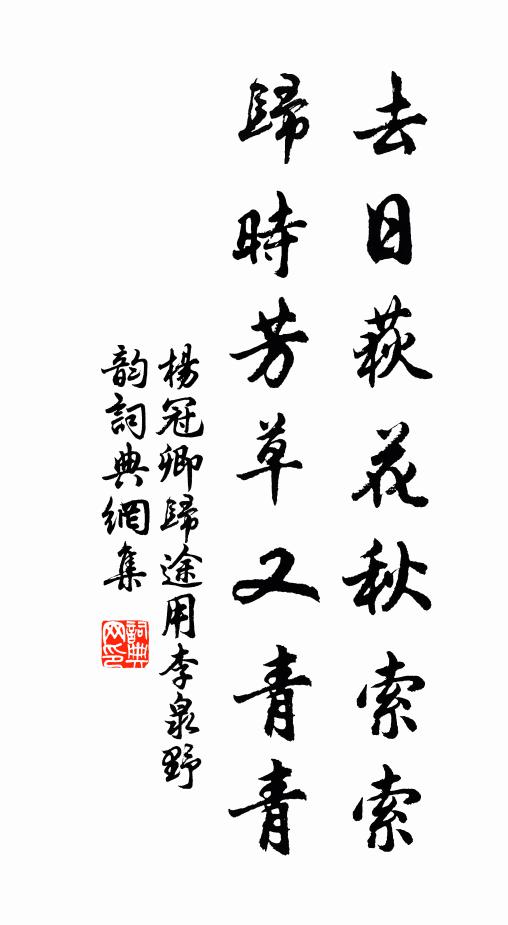 去日荻花秋索索
歸時芳草又青青
楊冠卿歸途用李泉野
韵詞典網集
詞典网印